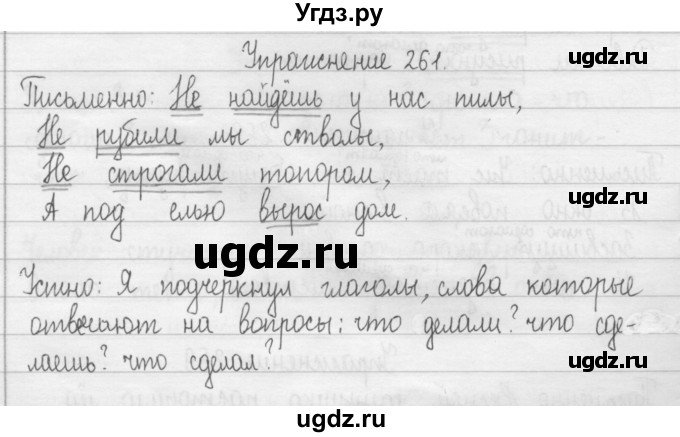 Угдз.ру
Упражнение 261.
Письменно: Не найдёшь у нас пилы,
Не рубили мы стволы,
Не строгали топором,
А под елью вырос дом.
Устно: Я подчеркнул глаголы, слова которые
отвечают на вопросы: что делали? что сде-
лаешь? что сделал?
ugdz.ru
ugdz.ru
ugdz.ru
ugdz.ru
ugdz.ru
ugdz.ru
ugdz.ru